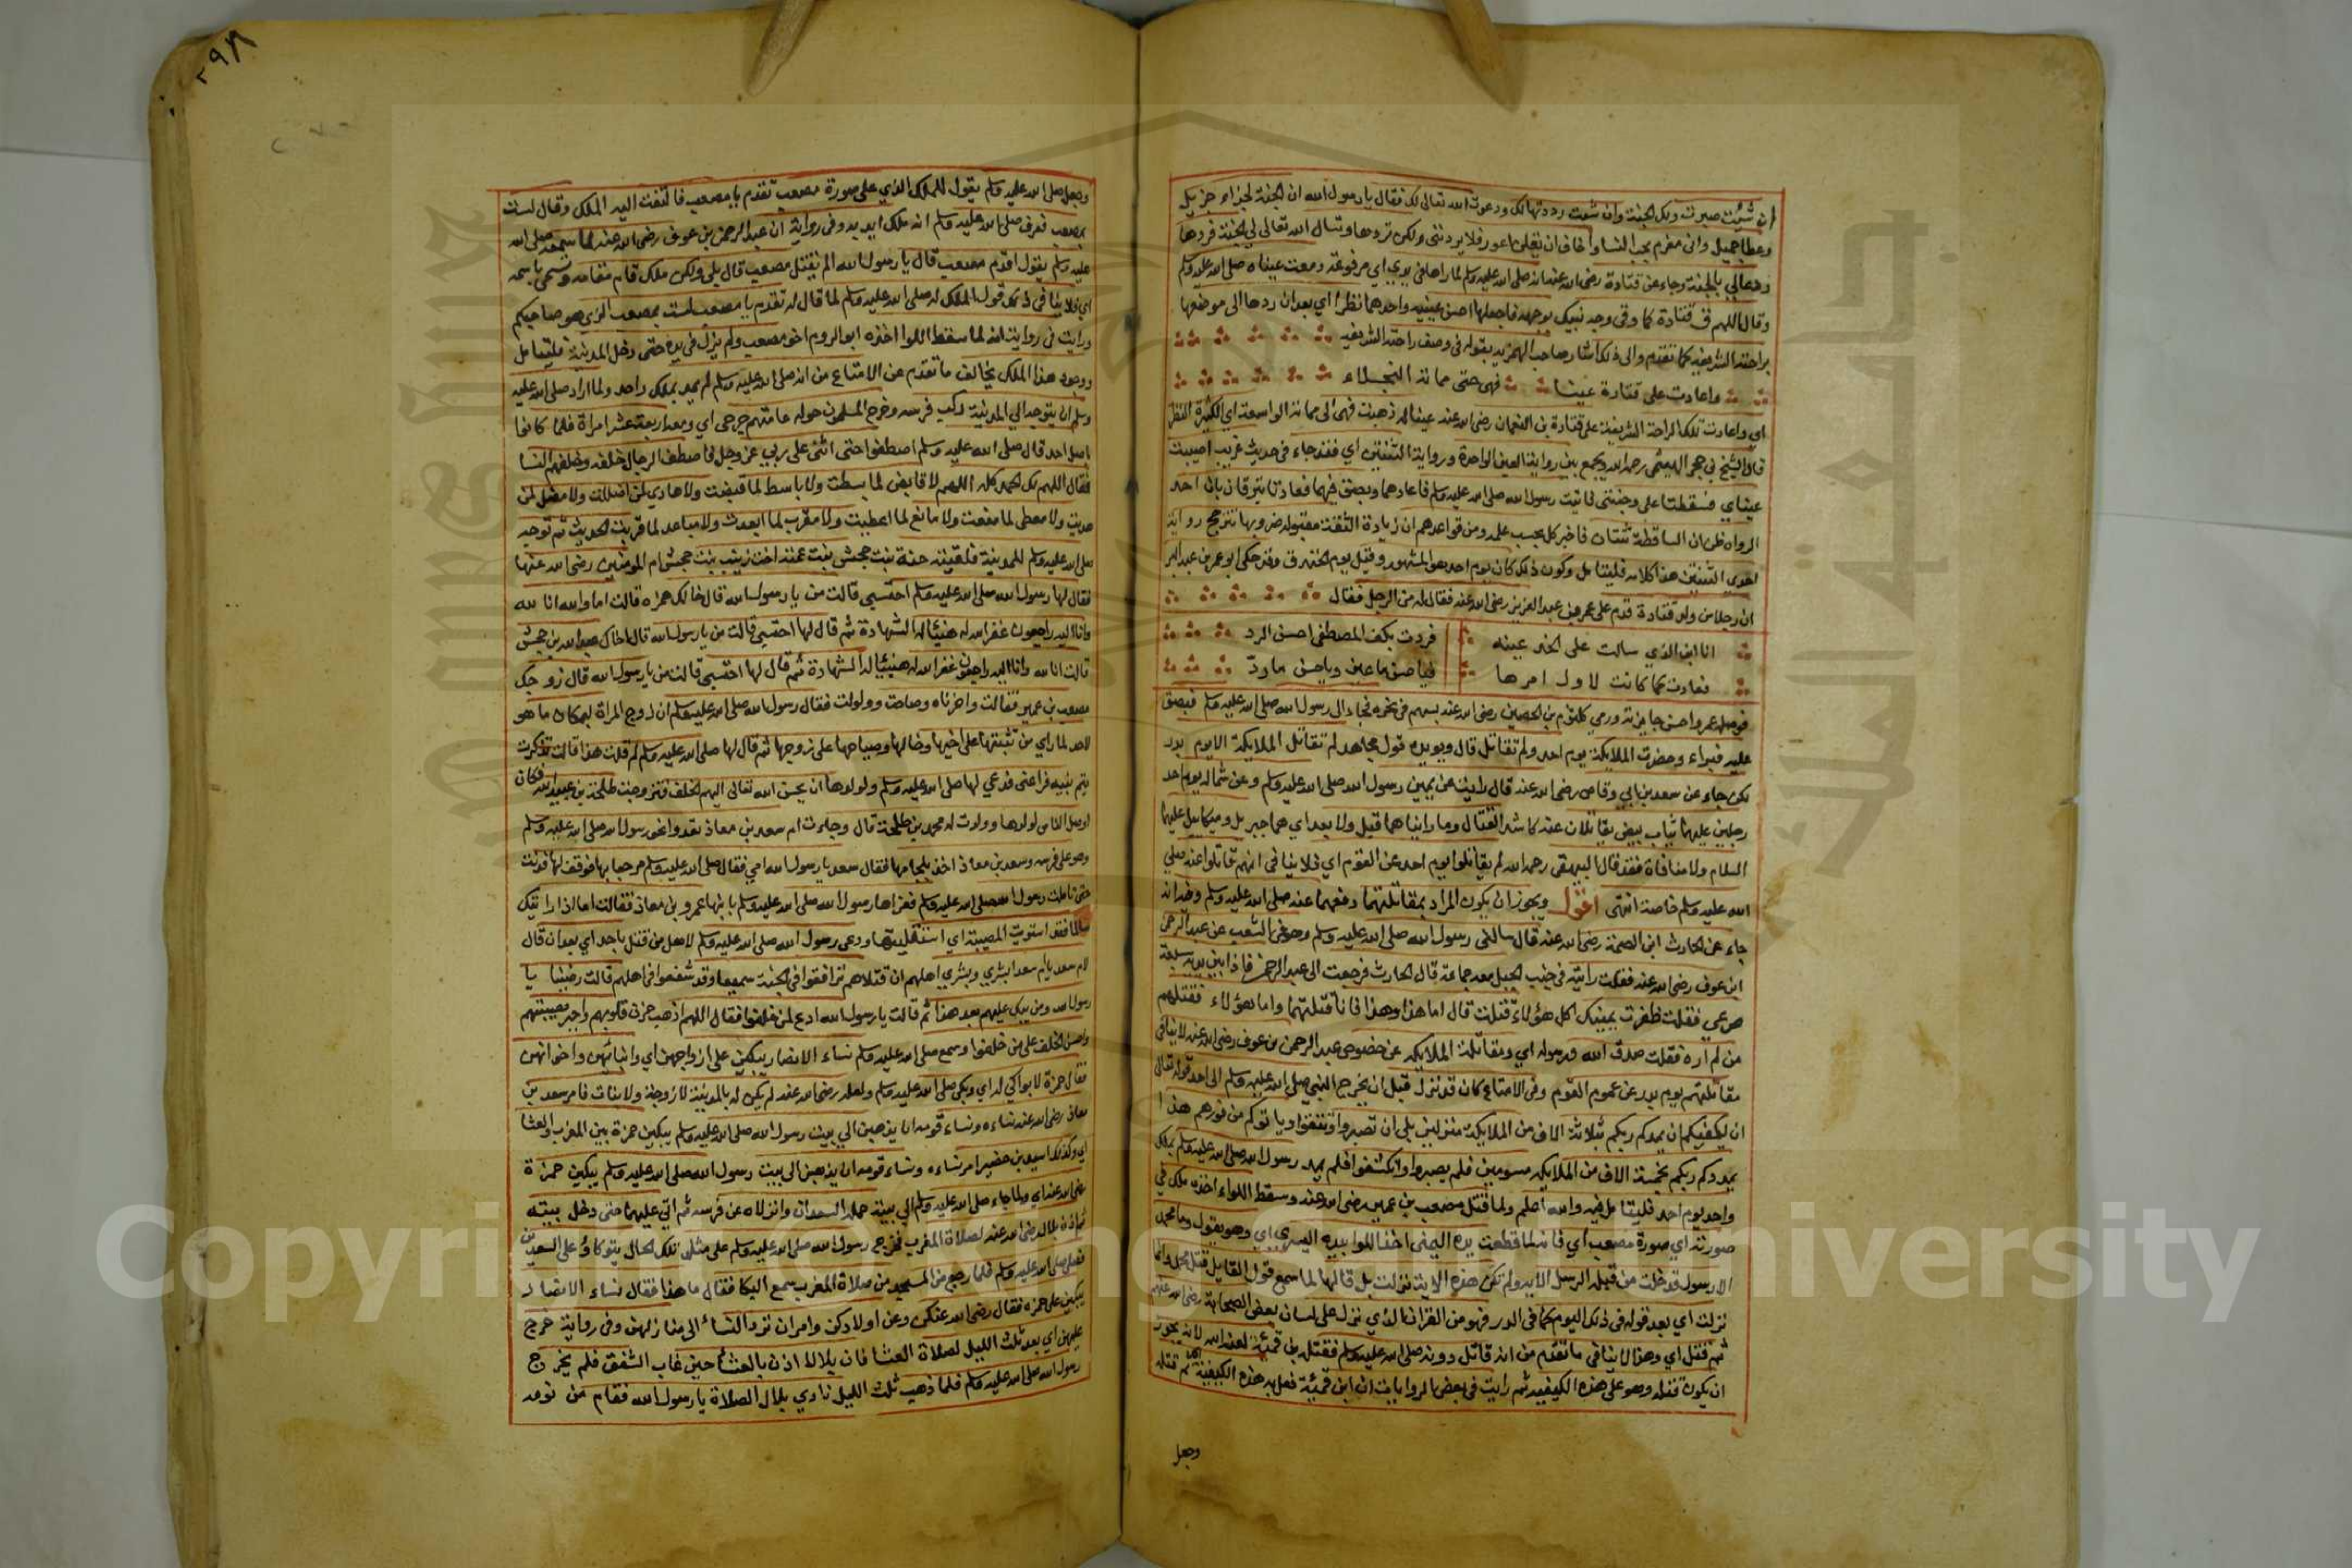 ٢٩٨
ان شئت صبرت ولك الجنة وان شئت رددتها لك ودعوت الله تعالى لك فقال يا رسول الله ان الجنة لجزاء جزيل
وعطا جميل واني مغرم بحب النسا واخاف ان يقلن اعور فلا يردنني ولكن تردها وتسال الله تعالى لي الجنة فردها
ودعا لي بالجنة وجاء عن قتادة رضي الله عنه انه صلى الله عليه وسلم لما راها في يدي اي مرفوعة دمعت عيناه صلى الله عليه وسلم
وقال اللهم ق قتادة كما وقى وجه نبيك بوجهه فاجعلها احسن عينيه واحدهما نظرا اي بعد ان ردها الى موضعها
براحته الشريفة كما تقدم والى ذلك اشار صاحب الهمزية بقوله في وصف راحته الشريفة
واعادت على قتادة عينا فهي حتى مماته النجلاء
اي واعادت تلك الراحة الشريفة على قتادة بن النعمان رضي الله عنه عينا له ذهبت فهي الى مماته الواسعة اي الكثيرة النظر
قال الشيخ بن حجر الهيتمي رحمه الله ويجمع بين رواية العين الواحدة ورواية الثنتين اي فقد جاء في حديث غريب اصيبت
عيناي فسقطتا على وجنتي فاتيت رسول الله صلى الله عليه وسلم فاعادهما وبصق فيهما فعادتا تبرقان بان احد
الرواه ظن ان الساقطة ثنتان فاخبر كل بحسب علمه ومن قواعدهم ان زيادة الثقة مقبولة وبها تترجح رواية
احدى الثنتين هذا كلامه فليتامل وكون ذلك كان يوم احد هو المشهور وقيل يوم الخندق وقد حكى ابو عمر بن عبد البر
ان رجلا من ولد قتادة قدم على عمر بن عبد العزيز رضي الله عنه فقال له من الرجل فقال
انا ابن الذي سالت على الخد عينه فردت بكف المصطفى احسن الرد
فعادت كما كانت لاول امرها فيا حسن ما عين ويا حسن ما ردّ
فوصله عمر واحسن جايزته ورمي كلثوم بن الحصين رضي الله عنه بسهم في نحره فجاء الى رسول الله صلى الله عليه وسلم فبصق
عليه فبراء وحضرت الملايكة يوم احد ولم تقاتل قال ويويده قول مجاهد لم تقاتل الملايكة الا يوم بدر
لكن جاء عن سعد بن ابي وقاص رضي الله عنه قال رايت عن يمين رسول الله صلى الله عليه وسلم وعن شماله يوم احد
رجلين عليهما ثياب بيض يقاتلان عنه كاشد القتال وما رايتهما قبل ولا بعد اي هما جبريل وميكاييل عليهما
السلام ولا منافاة فقد قال البيهقي رحمه الله لم يقاتلوا يوم احد عن القوم اي فلا ينافي انهم قاتلوا عنه صلى
الله عليه وسلم خاصة انتهى اقول ويجوز ان يكون المراد بمقاتلتهما دفعهما عنه صلى الله عليه وسلم
جاء عن الحارث ابن الصمة رضي الله عنه قال سالني رسول الله صلى الله عليه وسلم وهو في الشعب عن عبد الرحمن
ابن عوف رضي الله عنه فقلت رايته في جنب الجبل معه جماعة قال الحارث فرجعت الى عبد الرحمن فاذا بين يديه سبعة
صرعى فقلت ظفرت يمينك اكل هؤلاء قتلت قال اما هذا وهذا فانا قتلتهما واما هؤلاء فقتلهم
من لم اره فقلت صدق الله ورسوله اي ومقاتلة الملايكة عن خصوص عبد الرحمن بن عوف رضي الله عنه لا ينافي
مقاتلتهم يوم بدر عن عموم القوم وفي الامتاع كان قد نزل قبل ان يخرج النبي صلى الله عليه وسلم الى احد قوله تعالى
ان يكفيكم ان يمدكم ربكم بثلاثة الاف من الملايكة منزلين بلى ان تصبروا وتتقوا وياتوكم من فورهم هذا
يمددكم ربكم بخمسة الاف من الملايكة مسومين فلم يصبروا وانكشفوا فلم يمد رسول الله صلى الله عليه وسلم بملك
واحد يوم احد فليتامل فيه والله اعلم ولما قتل مصعب بن عمير رضي الله عنه وسقط اللواء اخذه ملك في
صورته اي صورة مصعب اي فانه لما قطعت يده اليمنى اخذ اللوا بيده اليسرى اي وهو يقول وما محمد
الا رسول قد خلت من قبله الرسل الاية ولم تكن هذه الاية نزلت بل قالها لما سمع قول القايل قتل محمد وانما
نزلت اي بعد قوله في ذلك اليوم كما في الدر فهو من القران الذي نزل على لسان بعض الصحابة رضي الله عنهم
ثم قتل اي وهذا لا ينافي ما تقدم من انه قاتل دونه صلى الله عليه وسلم فقتله بن قمئة لعنه الله لانه يجوز
ان يكون قتله وهو على هذه الكيفية ثم رايت في بعض الروايات ان ابن قمئة فعل به هذه الكيفية ثم قتله
وجعل
وجعل صلى الله عليه وسلم يقول للملك الذي على صورة مصعب تقدم يا مصعب فالتفت اليه الملك وقال لست
بمصعب فعرف صلى الله عليه وسلم انه ملك ايد به وفي رواية ان عبد الرحمن بن عوف رضي الله عنه لما سمعه صلى الله
عليه وسلم يقول اقدم مصعب قال يا رسول الله الم يقتل مصعب قال بلى ولكن ملك قام مقامه وسمي باسمه
اي فلا ينافي ذلك قول الملك له صلى الله عليه وسلم لما قال له تقدم يا مصعب لست بمصعب الذي هو صاحبكم
ورايت في رواية انه لما سقط اللوا اخذه ابو الروم اخو مصعب ولم يزل في يده حتى دخل المدينة فليتامل
ووجود هذا الملك يخالف ما تقدم عن الامتاع من انه صلى الله عليه وسلم لم يمد بملك واحد ولما اراد صلى الله عليه
وسلم ان يتوجه الى المدينة ركب فرسه وخرج المسلمون حوله عامتهم جرحى اي ومعه اربعة عشر امراة فلما كانوا
باصل احد قال صلى الله عليه وسلم اصطفوا حتى اثني على ربي عز وجل فاصطف الرجال خلفه وخلفهم النسا
فقال اللهم لك الحمد كله اللهم لا قابض لما بسطت ولا باسط لما قبضت ولا هادي لمن اضللت ولا مضل لمن
هديت ولا معطي لما منعت ولا مانع لما اعطيت ولا مقرب لما ابعدت ولا مباعد لما قربت الحديث ثم توجه
صلى الله عليه وسلم للمدينة فلقيته حمنة بنت جحش بنت عمته اخت زينب بنت جحش ام المومنين رضي الله عنها
فقال لها رسول الله صلى الله عليه وسلم احتسبي قالت من يا رسول الله قال خالك حمزه قالت اما والله انا لله
وانا اليه راجعون غفر الله له هنيئا له الشهادة ثم قال لها احتسبي قالت من يا رسول الله قال اخاك عبد الله بن جحش
قالت انا لله وانا اليه راجعون غفر الله له هنيئا له الشهادة ثم قال لها احتسبي قالت من يا رسول الله قال زوجك
مصعب بن عمير فقالت واحزناه وصاحت وولولت فقال رسول الله صلى الله عليه وسلم ان زوج المراة لبمكان ما هو
لاحد لما راي من تثبتها على اخيها وخالها وصياحها على زوجها ثم قال لها صلى الله عليه وسلم لم قلت هذا قالت تذكرت
يتم بنيه فراعني فدعى لها صلى الله عليه وسلم ولولدها ان يحسن الله تعالى اليهم الخلف فتزوجت طلحة بن عبيد الله فكان
اوصل الناس لولدها وولدت له محمد بن طلحة قال وجاءت ام سعد بن معاذ تعدوا نحو رسول الله صلى الله عليه وسلم
وهو على فرسه وسعد بن معاذ اخذ بلجامها فقال سعد يا رسول الله امي فقال صلى الله عليه وسلم مرحبا بها فوقف لها فدنت
حتى تاملت رسول الله صلى الله عليه وسلم فعزاها رسول الله صلى الله عليه وسلم بابنها عمرو بن معاذ فقالت اما اذا رايتك
سالما فقد استويت المصيبة اي استقليتها ودعى رسول الله صلى الله عليه وسلم لاهل من قتل باحد اي بعد ان قال
لام سعد يا ام سعد ابشري وبشري اهلهم ان قتلاهم ترافقوا في الجنة جميعا وقد شفعوا في اهلهم قالت رضينا يا
رسول الله ومن يبكي عليهم بعد هذا ثم قالت يا رسول الله ادع لمن خلفوا فقال اللهم اذهب حزن قلوبهم واجبر مصيبتهم
واحسن الخلف على من خلفوا وسمع صلى الله عليه وسلم نساء الانصار يبكين على ازواجهن اي وابنائهن واخوانهن
فقال حمزة لا بواكي له اي وبكى صلى الله عليه وسلم ولعله رضي الله عنه لم يكن له بالمدينة لا زوجة ولا بنات فامر سعد بن
معاذ رضي الله عنه نساءه ونساء قومه ان يذهبن الى بيت رسول الله صلى الله عليه وسلم يبكين حمزة بين المغرب والعشا
اي وكذلك اسيد بن حضير امر نساءه ونساء قومه ان يذهبن الى بيت رسول الله صلى الله عليه وسلم يبكين حمزة
رضي الله عنه اي ولما جاء صلى الله عليه وسلم الى بيته حمله السعدان وانزلاه عن فرسه ثم اتكى عليهما حتى دخل بيته
ثم اذن بلال رضي الله عنه لصلاة المغرب فخرج رسول الله صلى الله عليه وسلم على مثل تلك الحال يتوكاؤ على السعدين
فصلى صلى الله عليه وسلم فلما رجع من المسجد من صلاة المغرب سمع البكا فقال ما هذا فقال نساء الانصار
يبكين على حمزه فقال رضي الله عنكن وعن اولادكن وامر ان ترد النساء الى منازلهن وفي رواية خرج
عليهن اي بعد ثلث الليل لصلاة العشا فان بلالا اذن بالعشا حين غاب الشفق فلم يخرج
رسول الله صلى الله عليه وسلم فلما ذهب ثلث الليل نادي بلال الصلاة يا رسول الله فقام من نومه
جامعة الملك
Copyright © King Saud University